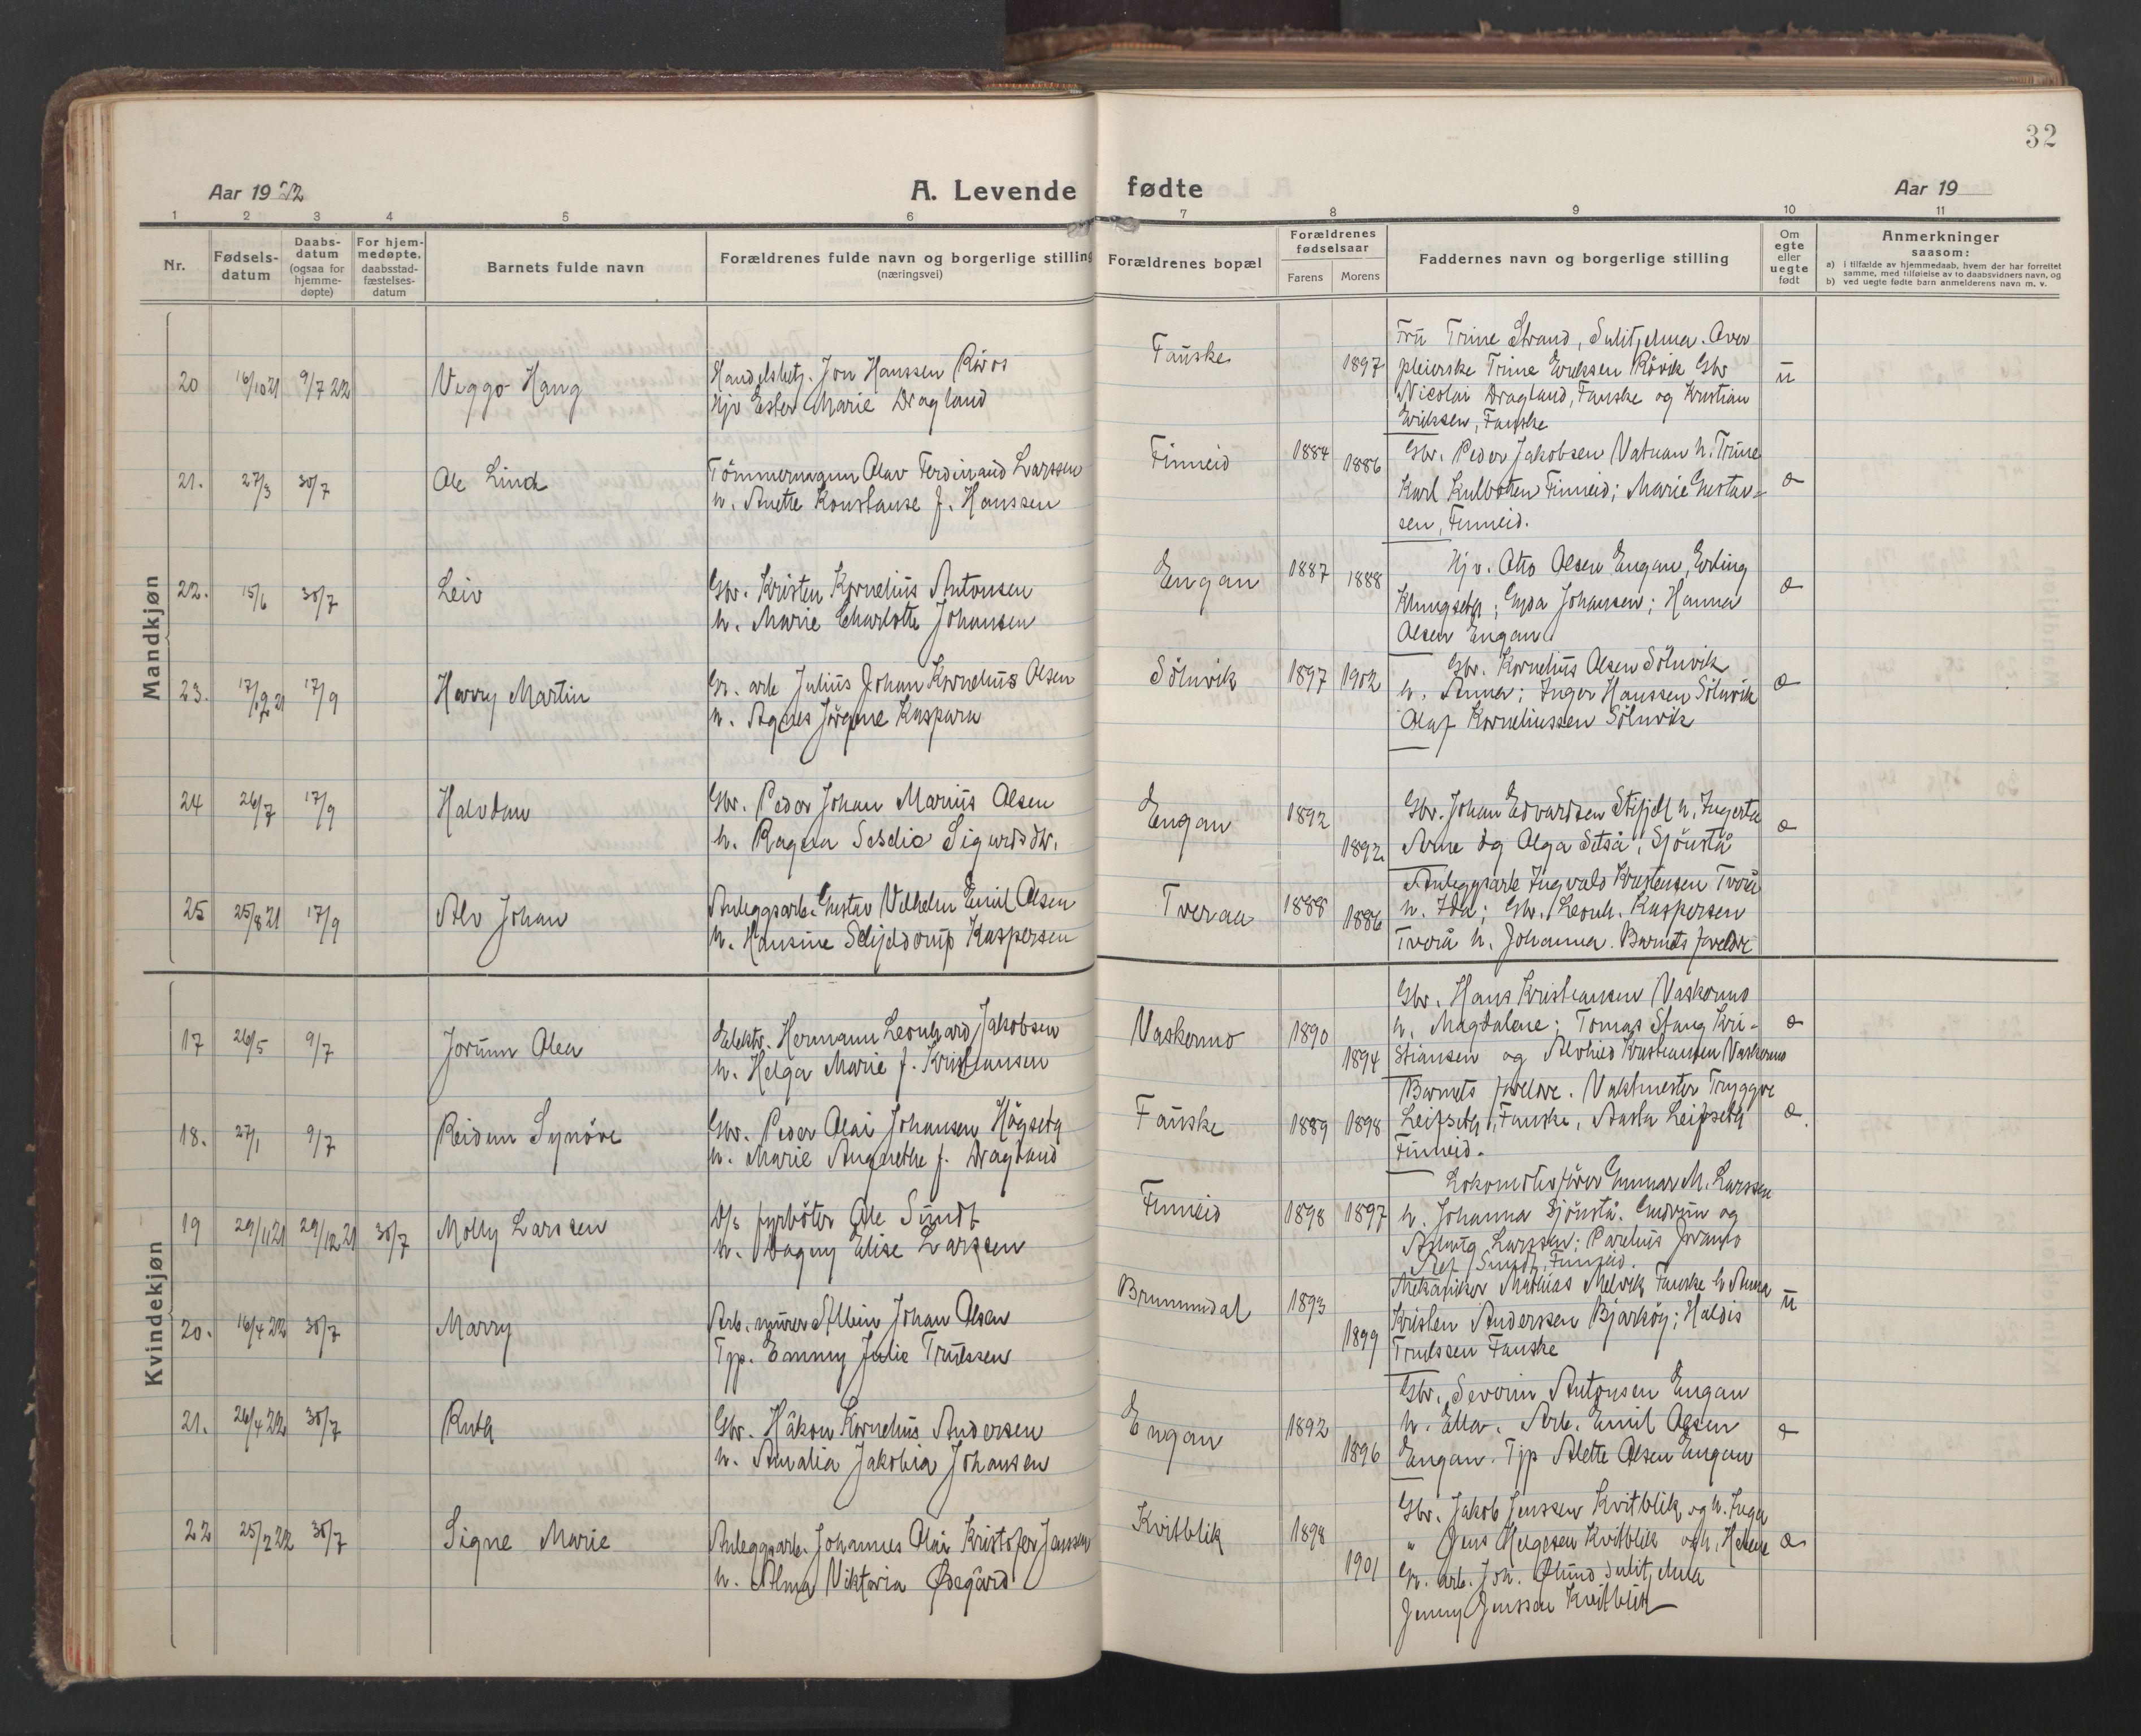 32
Aar 1922
A. Levende fødte
Aar 19
1 2 3 4 5 6 7 8 9 10 11
Nr.
Fødsels-
datum
Daabs-
datum
(ogsaa for
hjemme-
døpte)
For hjem-
medøpte.
daabsstad-
fæstelses-
datum
Barnets fulde navn
Forældrenes fulde navn og borgerlige stilling
(næringsvei)
Forældrenes bopæl
Forældrenes
fødselsaar
Farens Morens
Faddernes navn og borgerlige stilling
Om
egte
eller
uegte
født
Anmerkninger
saasom:
a) i tilfælde av hjemmedaab, hvem der har forrettet
samme, med tilføielse av to daabsvidners navn, og
b) ved uegte fødte barn anmelderens navn m. v.
Mandkjøn
20 16/10 21 9/7 22 Viggo Hang
Handelsbetj. Jon Hanssen Rivos
Hjv Ester Marie Dragland
Fauske 1897
Fru Trine Strand, Sulitjelma. Over
pleierske Trine Eriksen Røvik Gbr
Nicolai Dragland, Fauske og Kristian
Eriksen, Fauske
u
21. 27/3 30/7 Ole Lind
Tömmermann Olav Ferdinand Larssen
h. Anette Konstanse f. Hanssen
Finneid 1884 1886
Gbr. Peder Jakobsen Vatnan h. Trine
Karl Kulbotten Finneid; Marie Gustav-
sen, Finneid.
e
22. 15/6 30/7 Leiv
Gbr. Kristen Kornelius Antonsen
h. Marie Charlotte Johansen
Engan 1887 1888
Hjv. Otto Olsen Engan, Erling
Klungseth; Gyda Johansen; Hanna
Olsen Engan.
e
23. 17/9 Harry Martin
Gr. arb Julius Johan Kornelius Olsen
h. Agnes Jörgine Kaspara
Sölnvik 1897 1902
Gbr. Kornelius Olsen Sölnvik
h. Anna; Inger Hanssen Sölnvik
Olaf Korneliussen Sölnvik
e
24 26/7 17/9 Halvdan
Gbr. Peder Johan Marius Olsen
h. Ragna Seselie Sigurdsdtr.
Engan 1892 1892
Gbr. Johan Edvardsen Stifjell h. Ingerta
Arne og Olga Setså, Sjönstå
e
25 25/8 21 17/9 Alv Johan
Anleggsarb. Gustav Vilhelm Emil Olsen
h. Hansine Schjeldrup Kaspersen
Tveraa 1888 1886
Anleggsarb Ingvald Kristensen Tverå
h. Ida; Gbr. Leonh. Kaspersen
Tverå h. Johanna. Barnets foreldre
Kvindekjøn
17 26/5 9/7 Jorunn Olea
Elektr. Hermann Leonhard Jakobsen
h. Helga Marie f. Kristiansen
Vaskermo 1890 1894
Gbr. Hans Kristiansen Vaskermo
h. Magdalene; Tomas Stang Kri-
stiansen og Alvhild Kristiansen Vaskermo
e
18. 27/1 9/7 Reidun Synöve
Gbr. Peder Olai Johansen Högseth
h. Marie Angnethe f. Dragland
Fauske 1889 1898
Barnets foreldre. Vaktmester Tryggve
Leifseth, Fauske, Aasta Leifseth
Finneid.
e.
19 29/11 21 29/12 21 30/7 Molly Larssen
D/s fyrböter Ole Sundt
h. Dagny Elise Larssen
Finneid 1898 1897
Lokomotivförer Gunnar M. Larssen
h. Johanna Sjönstå. Gudrun og
Aslaug Larssen; Parelius
Sundt, Finneid.
20. 16/4 22 30/7 Marry
Arb. murer Albin Johan Olsen
Tjp. Emmy Julie Trulssen
Brummundal 1893 1899
Mekaniker Mathias Melvik Fauske h Anna
Kristen Anderssen Bjarköy; Haldis
Trulssen Fauske
u
21. 26/4 22 30/7 Ruth
Gbr. Håkon Kornelius Andersen
h. Amalia Jakobia Johansen
Engan 1892 1896
Gbr. Severin Antonsen Engan
h. Ella. Arb. Emil Olsen
Engan. Tjp Alette Olsen Engan
e
22 25/2 22 30/7 Signe Marie
Anleggsarb. Johannes Olai Kristofer Jenssen
h. Alma Viktoria Ødegård
Kvitblik 1898 1901
Gbr. Jakob Jenssen Kvitblik og h. Inga
" Jens Helgesen Kvitblik og h. Helene
Gr. arb. Joh. Ølund Sulitjelma
Jenny Jenssen Kvitblik
e